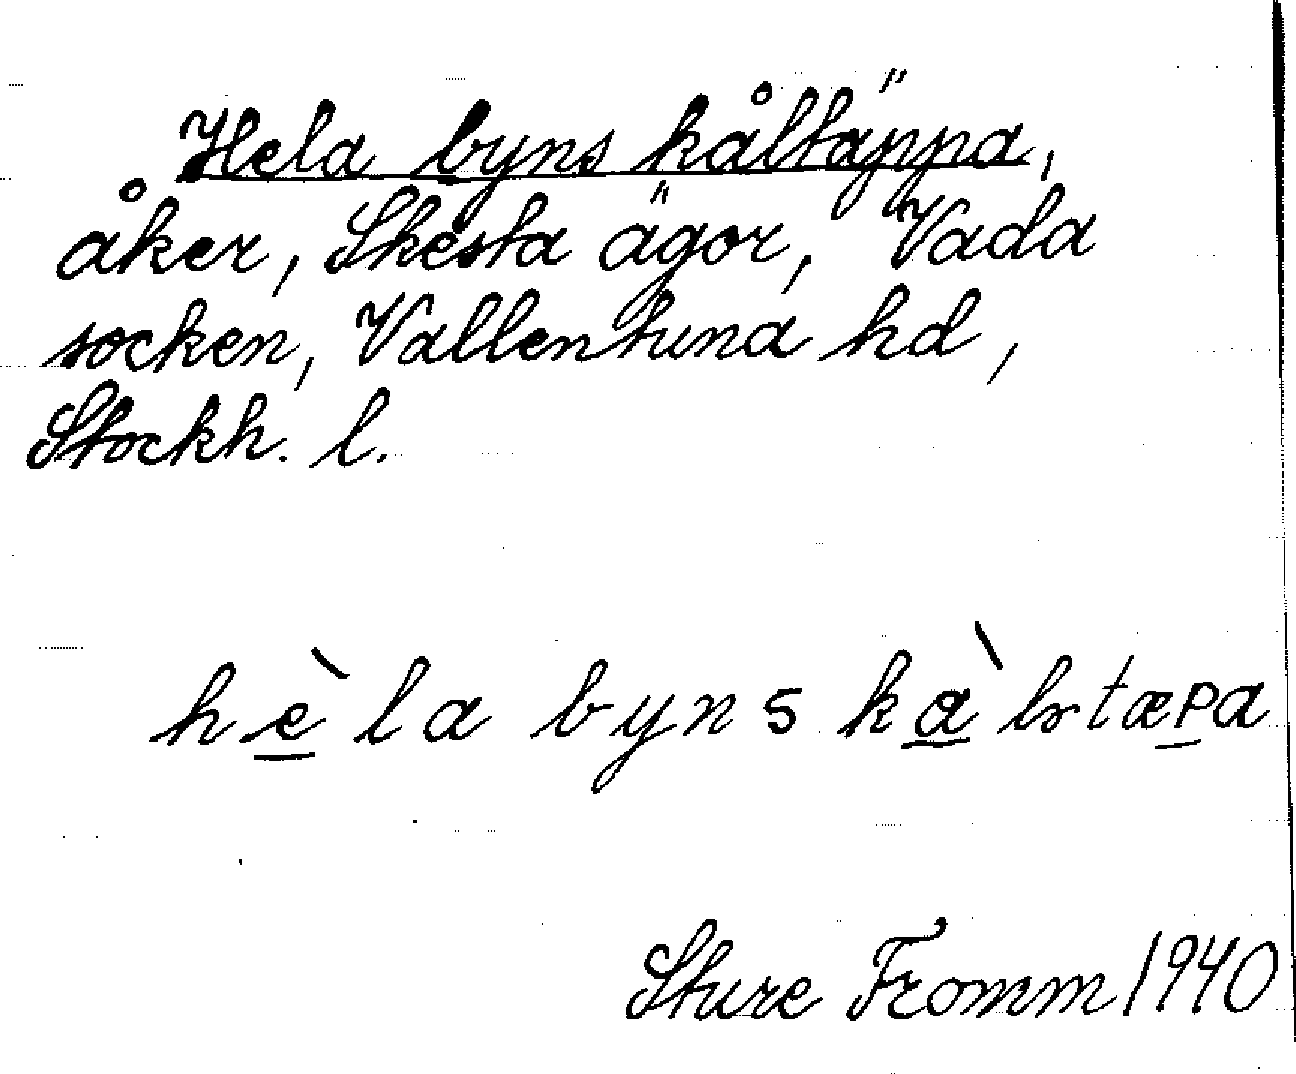 Hela byns kåltäppa,
åker, Skesta ägor, Vada
socken, Vallentuna hd,
Stockh. l.
hèla byns kàlstæpa
Sture Fromm 1940